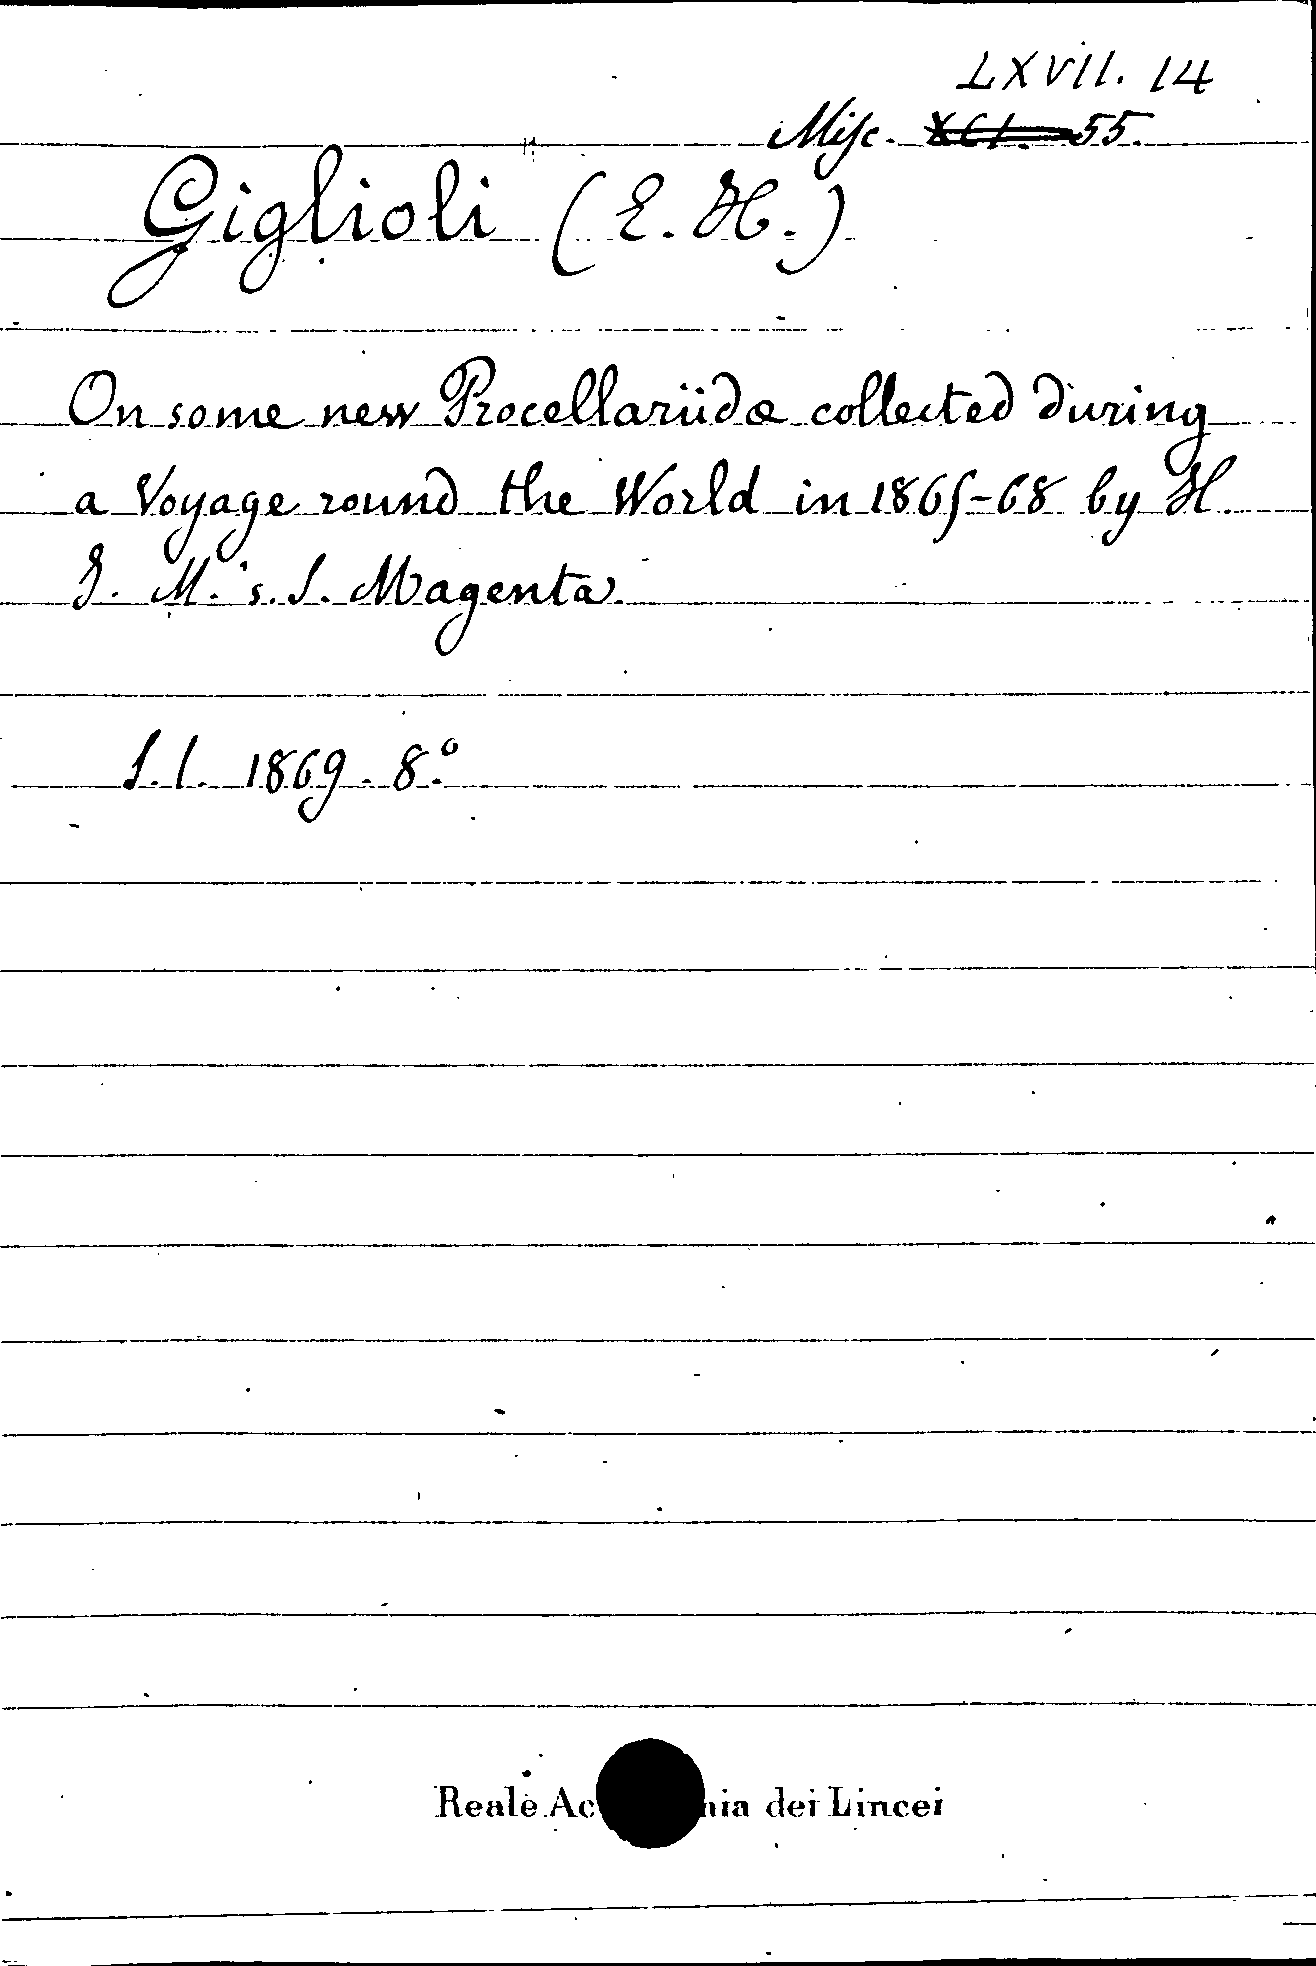 LXVII. 14
Misc. XCI. 55.
Giglioli (E. H.)
On some new Procellariidæ collected during
a Voyage round the World in 1865-68 by H.
I. M.'s. S. Magenta.
S. l. 1869. 8.º
Reale Ac mia dei Lincei